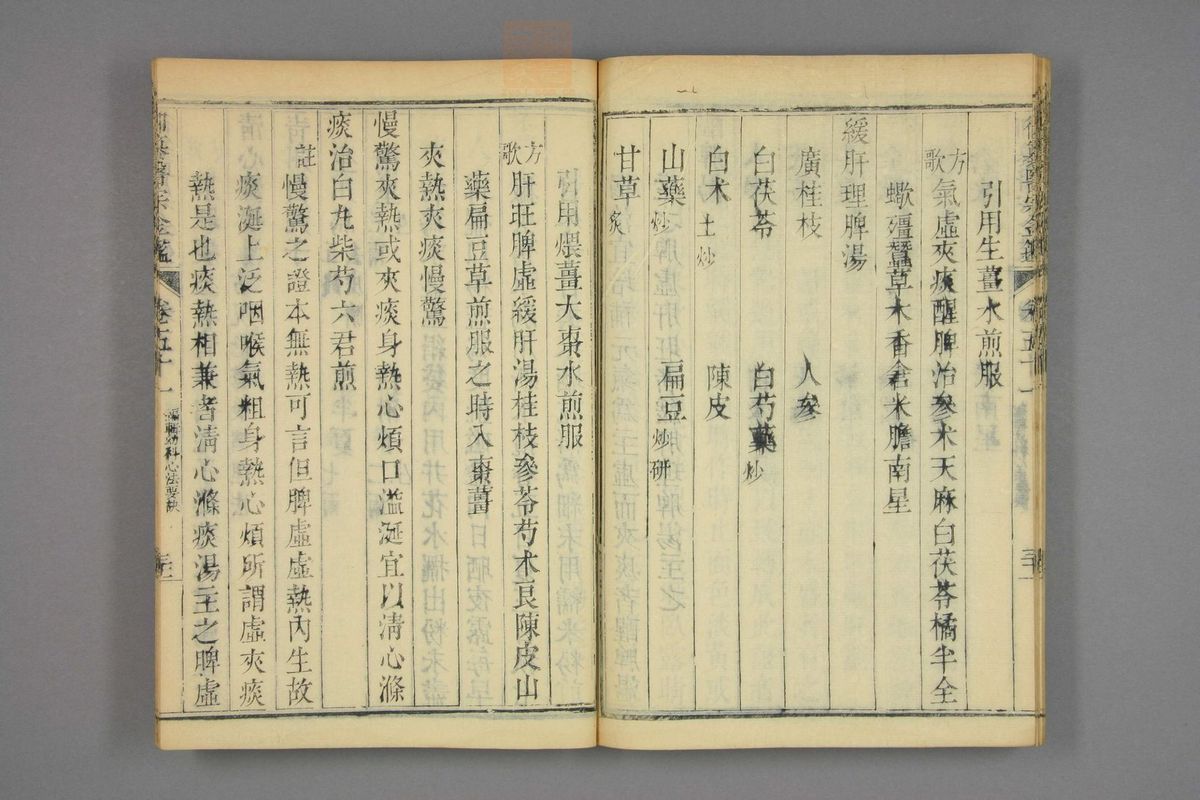 引用生薑水煎服
方歌 氣虛夾痰醒脾治參朮天麻白茯苓橘半全
蠍殭蠶草木香倉米膽南星
緩肝理脾湯
廣桂枝 人參
白茯苓 白芍藥炒
白朮土炒 陳皮
山藥炒 扁豆炒研
甘草炙
引用煨薑大棗水煎服
方歌 肝旺脾虛緩肝湯桂枝參苓芍朮良陳皮山
藥扁豆草煎服之時入棗薑
夾熱夾痰慢驚
慢驚夾熱或夾痰身熱心煩口溢涎宜以清心滌
痰治白丸柴芍六君煎
註 慢驚之證本無熱可言但脾虛虛熱內生故
痰涎上泛咽喉氣粗身熱心煩所謂虛夾痰
熱是也痰熱相兼者清心滌痰湯主之脾虛
御纂醫宗金鑑 卷五十一 編輯幼科心法要訣